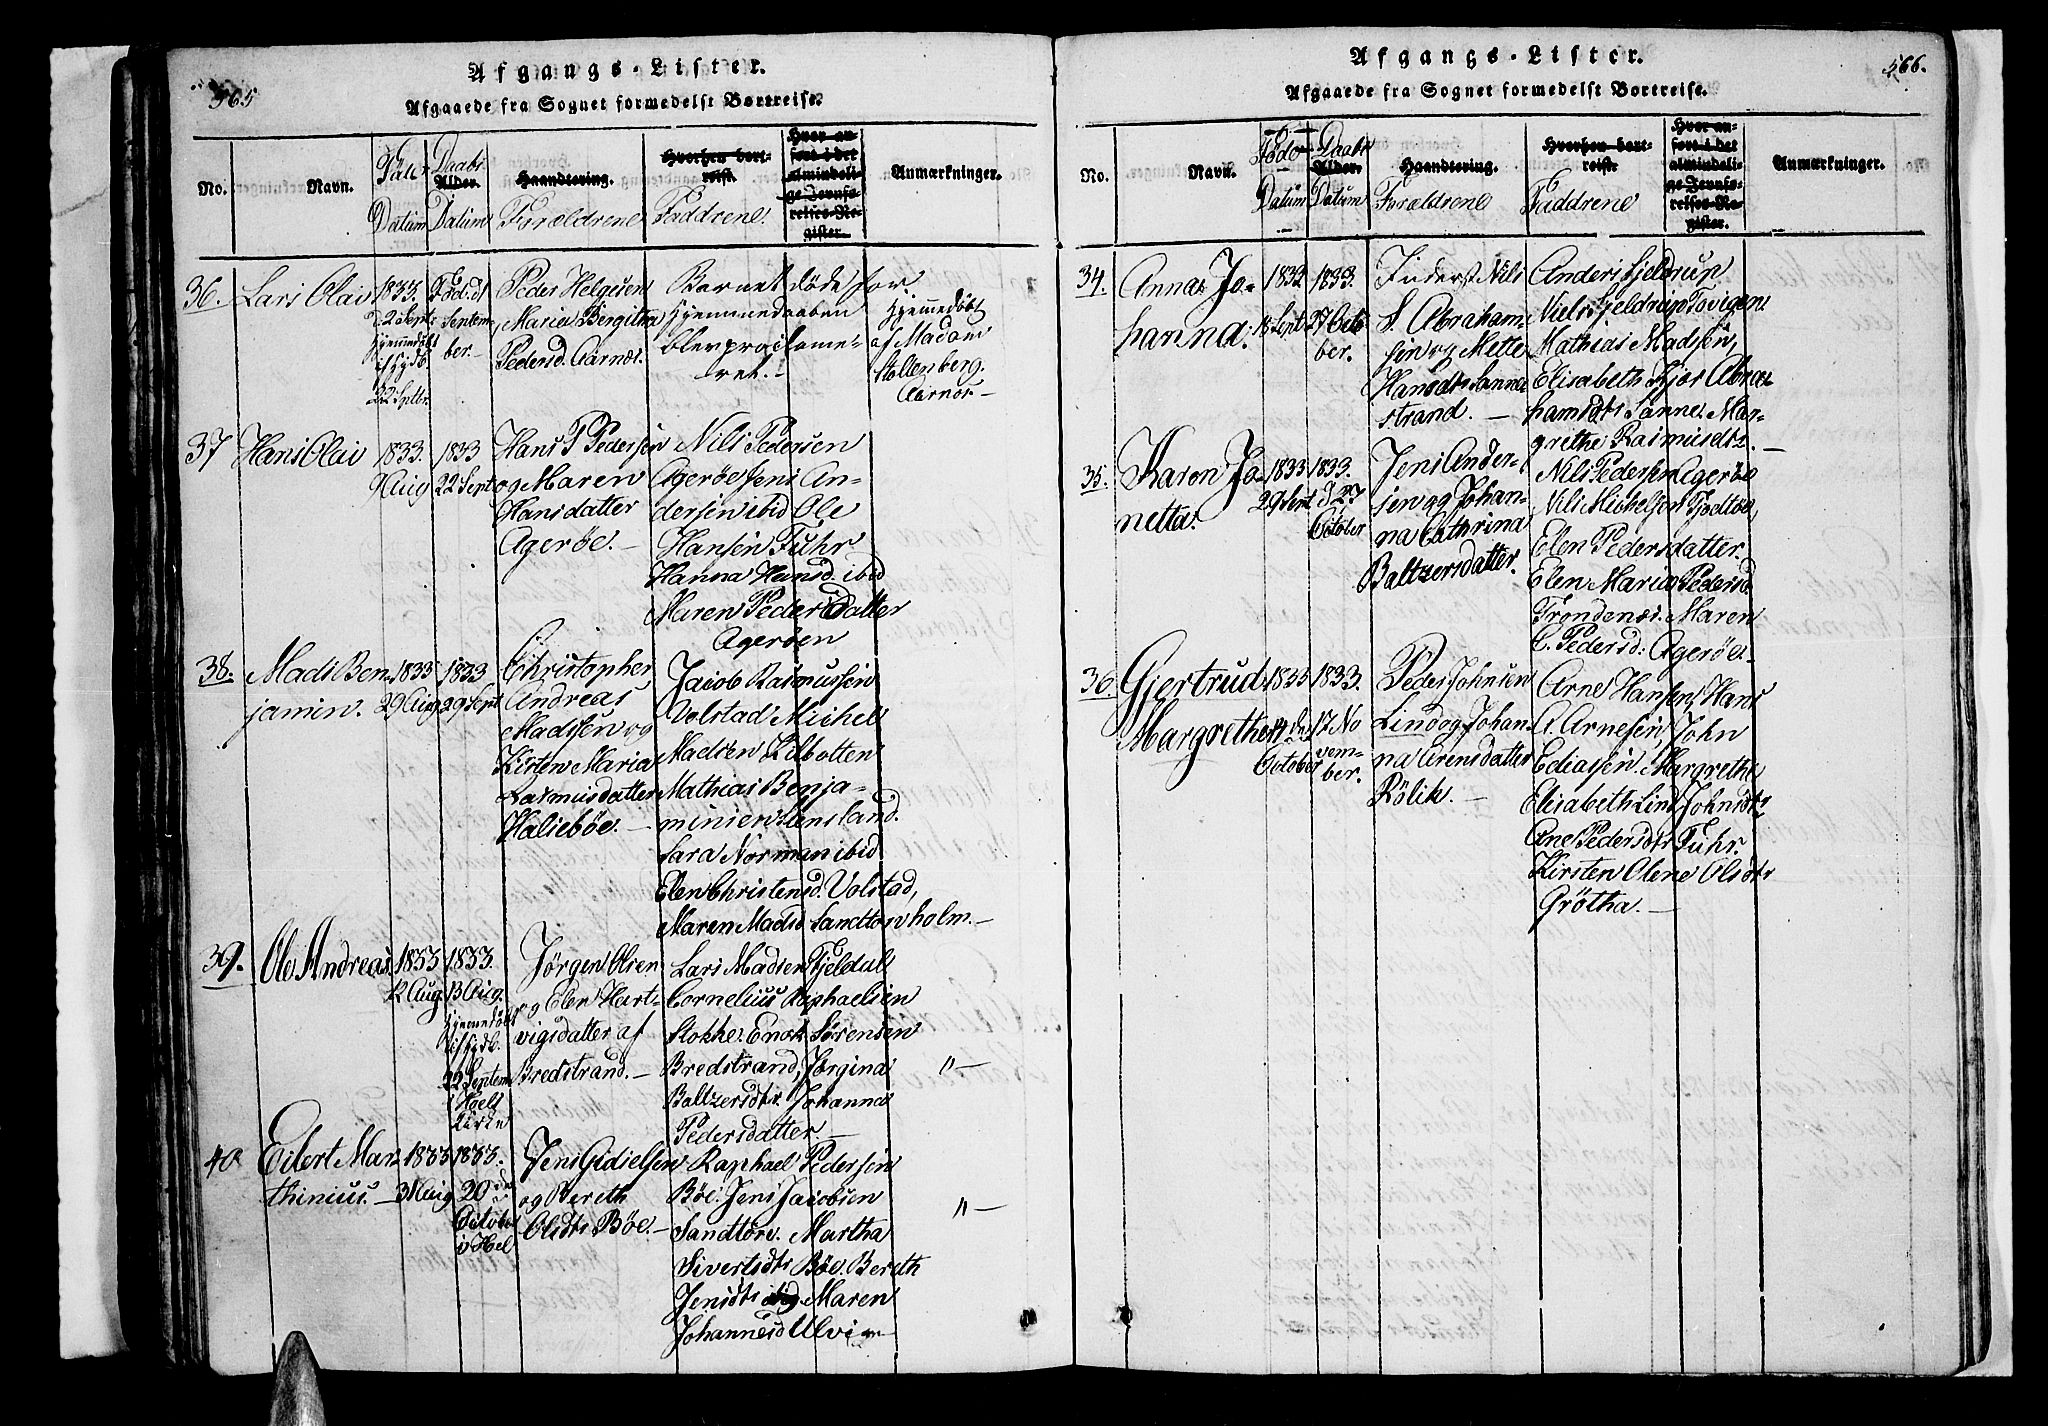 565
Afgangs-Lister.
Afgaaede fra Sognet formedelst Bortreise.
No.
Navn.
Datum
Daabs
Alder.
Datum
Haandtering.
Forældrene
Hvorhen bort-
reist.
Faddrene.
Hvor an-
ført i det
almindeli-
ge Jevnfø-
relses-Re-
gister.
Anmærkninger.
36.
Lars Olai
1833.
22 Sept.
hjemmedøbt
22 Septbr.
Septem
ber.
Peder Helgesen
Maria Bergitha
Pedersd. Aarnæs.
Barnet døde før
Hjemmedaaben
blev proclame-
ret.
Hjemmedøbt
af Madam
Stoltenberg.
Aarnæs.
37
Hans Olai
1833.
9 Aug
1833
22 Sept
Hans P Pedersen
og Maren
Hansdatter
Agerøe.
Nils Pedersen
Agerøe Jens An-
dersen ibid Ole
Hansen Fuhr
Hanna Hansd. ibid
Maren Pedersdatter
Agerøen
38.
Mads Ben-
jamin.
1833
29 Aug
1833
29 Sept
Christopher
Andreas
Madssen og
Kirsten Maria
Rasmusdatter
Haliebøe.
Jacob Rasmussen
Volstad Michel
Madsen Kilbotten
Mathias Benja-
minsen
Sara Norman ibid
Elen Christensd. Volstad,
Maren Madsd Sandtorvholm.
39.
Ole Andreas
1833
12 Aug.
1833.
13 Aug.
Hjemmedøbt
22 Septem
i Hoels
Kirke
Jørgen Olsen
og Elen Hart-
vigsdatter af
Bredstrand.
Lars Madsen Fjeldal
Cornelius Raphaelsen
Stokke. Enok Sørensen
Bredstrand, Jørgina
Baltzersdtr. Johanna
Pedersdatter.
"
40
Eilert Mar-
thinius.
1833
31 Aug
1833.
20 de
October
i Hol
Jens Gidselsen
og Bereth
Olsdtr Bøe.
Raphael Pedersen
Bøe. Jens Jacobsen
Sandtorv. Martha
Sivertsdtr Bøe. Bereth
Jensdtr Maren
Johannesd Ulvi
"
566.
Afgangs-Lister.
Afgaaede fra Sognet formedelst Bortreise.
No.
Navn.
Føde
Datum
Daabs
Alder.
Datum
Haandtering.
Forældrene
Hvorhen bort-
reist.
Faddrene
Hvor an-
ført i det
almindeli-
ge Jevnfø-
relses-Re-
gister.
Anmærkninger.
34.
Anna Jo-
hanna.
1833
18 Sept
1833.
27 Octo
ber.
Inderst Nils
S. Abraham-
sen og Mette
Hansdtr Sanna
strand.
Anders Fjeldrup
Niels Fjeldrup Tovigen
Mathias Madsen,
Elisabeth Fjør Abra-
hamsdtr Sanne. Mar-
grethe Rasmusdtr.
35.
Karen Jo-
netta.
1833
29 Sept
1833.
d 27
October
Jens Ander-
sen og Johan-
na Cathrina
Baltzersdatter.
Nils Pedersen Agerøe
Nils Michelsen Fjodtøe,
Elen Pedersdatter.
Elen Maria Pedersd.
Trondenæs. Maren
C. Pedersd: Agerøe
36.
Gjertrud
Margrethe
1833
October
1833.
17 No
vem-
ber.
Peder Johnsen
Lind og Johan
na Arensdatter
Rølik.
Arne Hansen, Hans
A. Arnesen, John
Eliassen. Margrethe
Elisabeth Lind Johnsdtr
Ane Pedersdtr Fuhr.
Kirsten Olene Olsdtr
Grøtha.